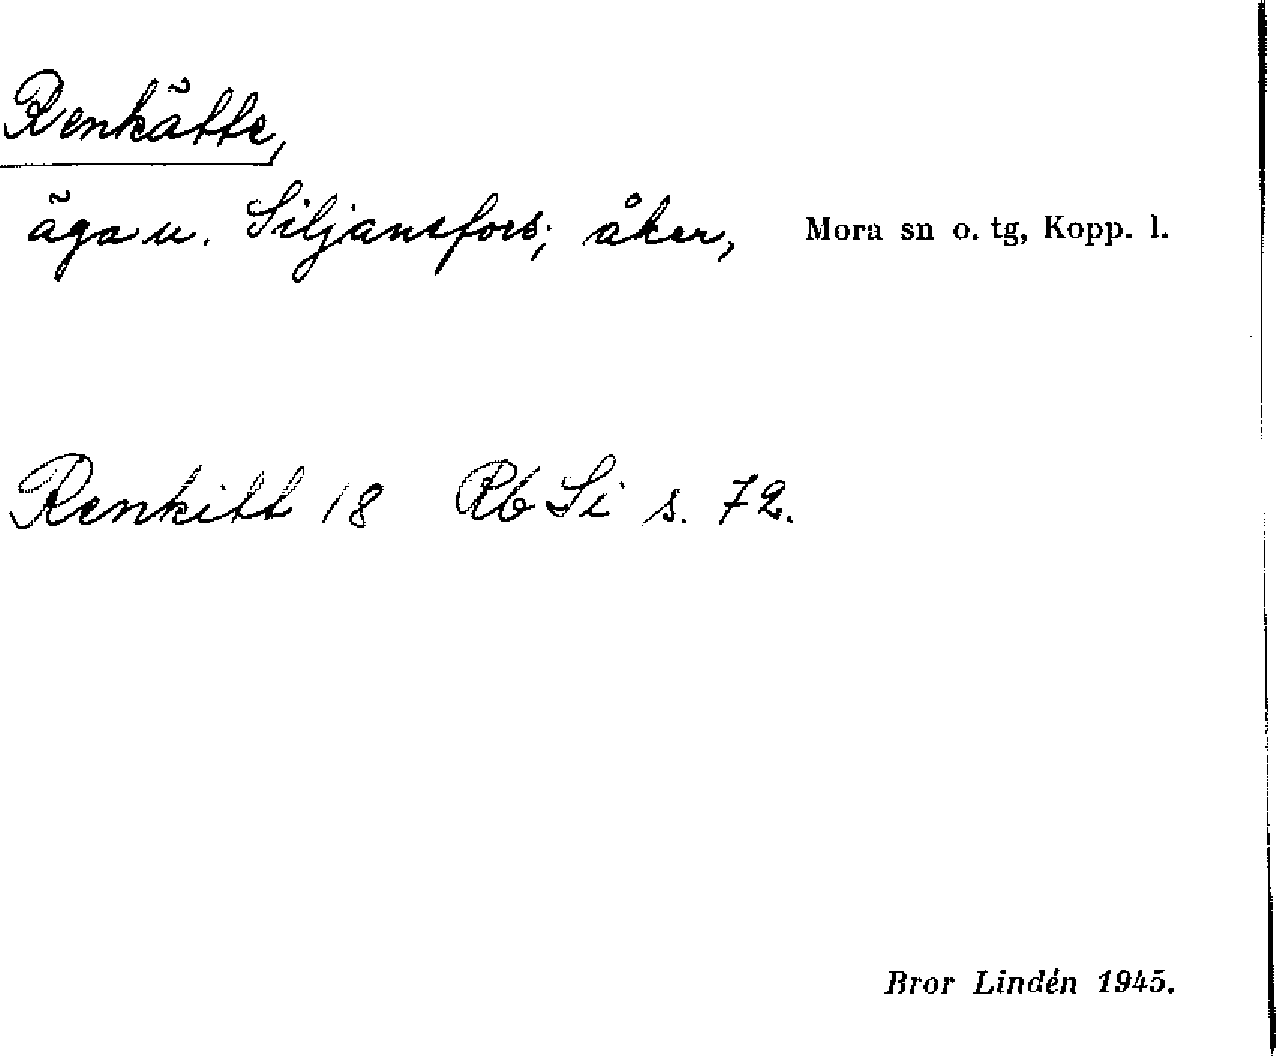 Renkätte,
äga u. Siljansfors; åker, Mora sn o. tg, Kopp. l.
Renkitt 18 Rb Si s. 72.
Bror Lindén 1945.